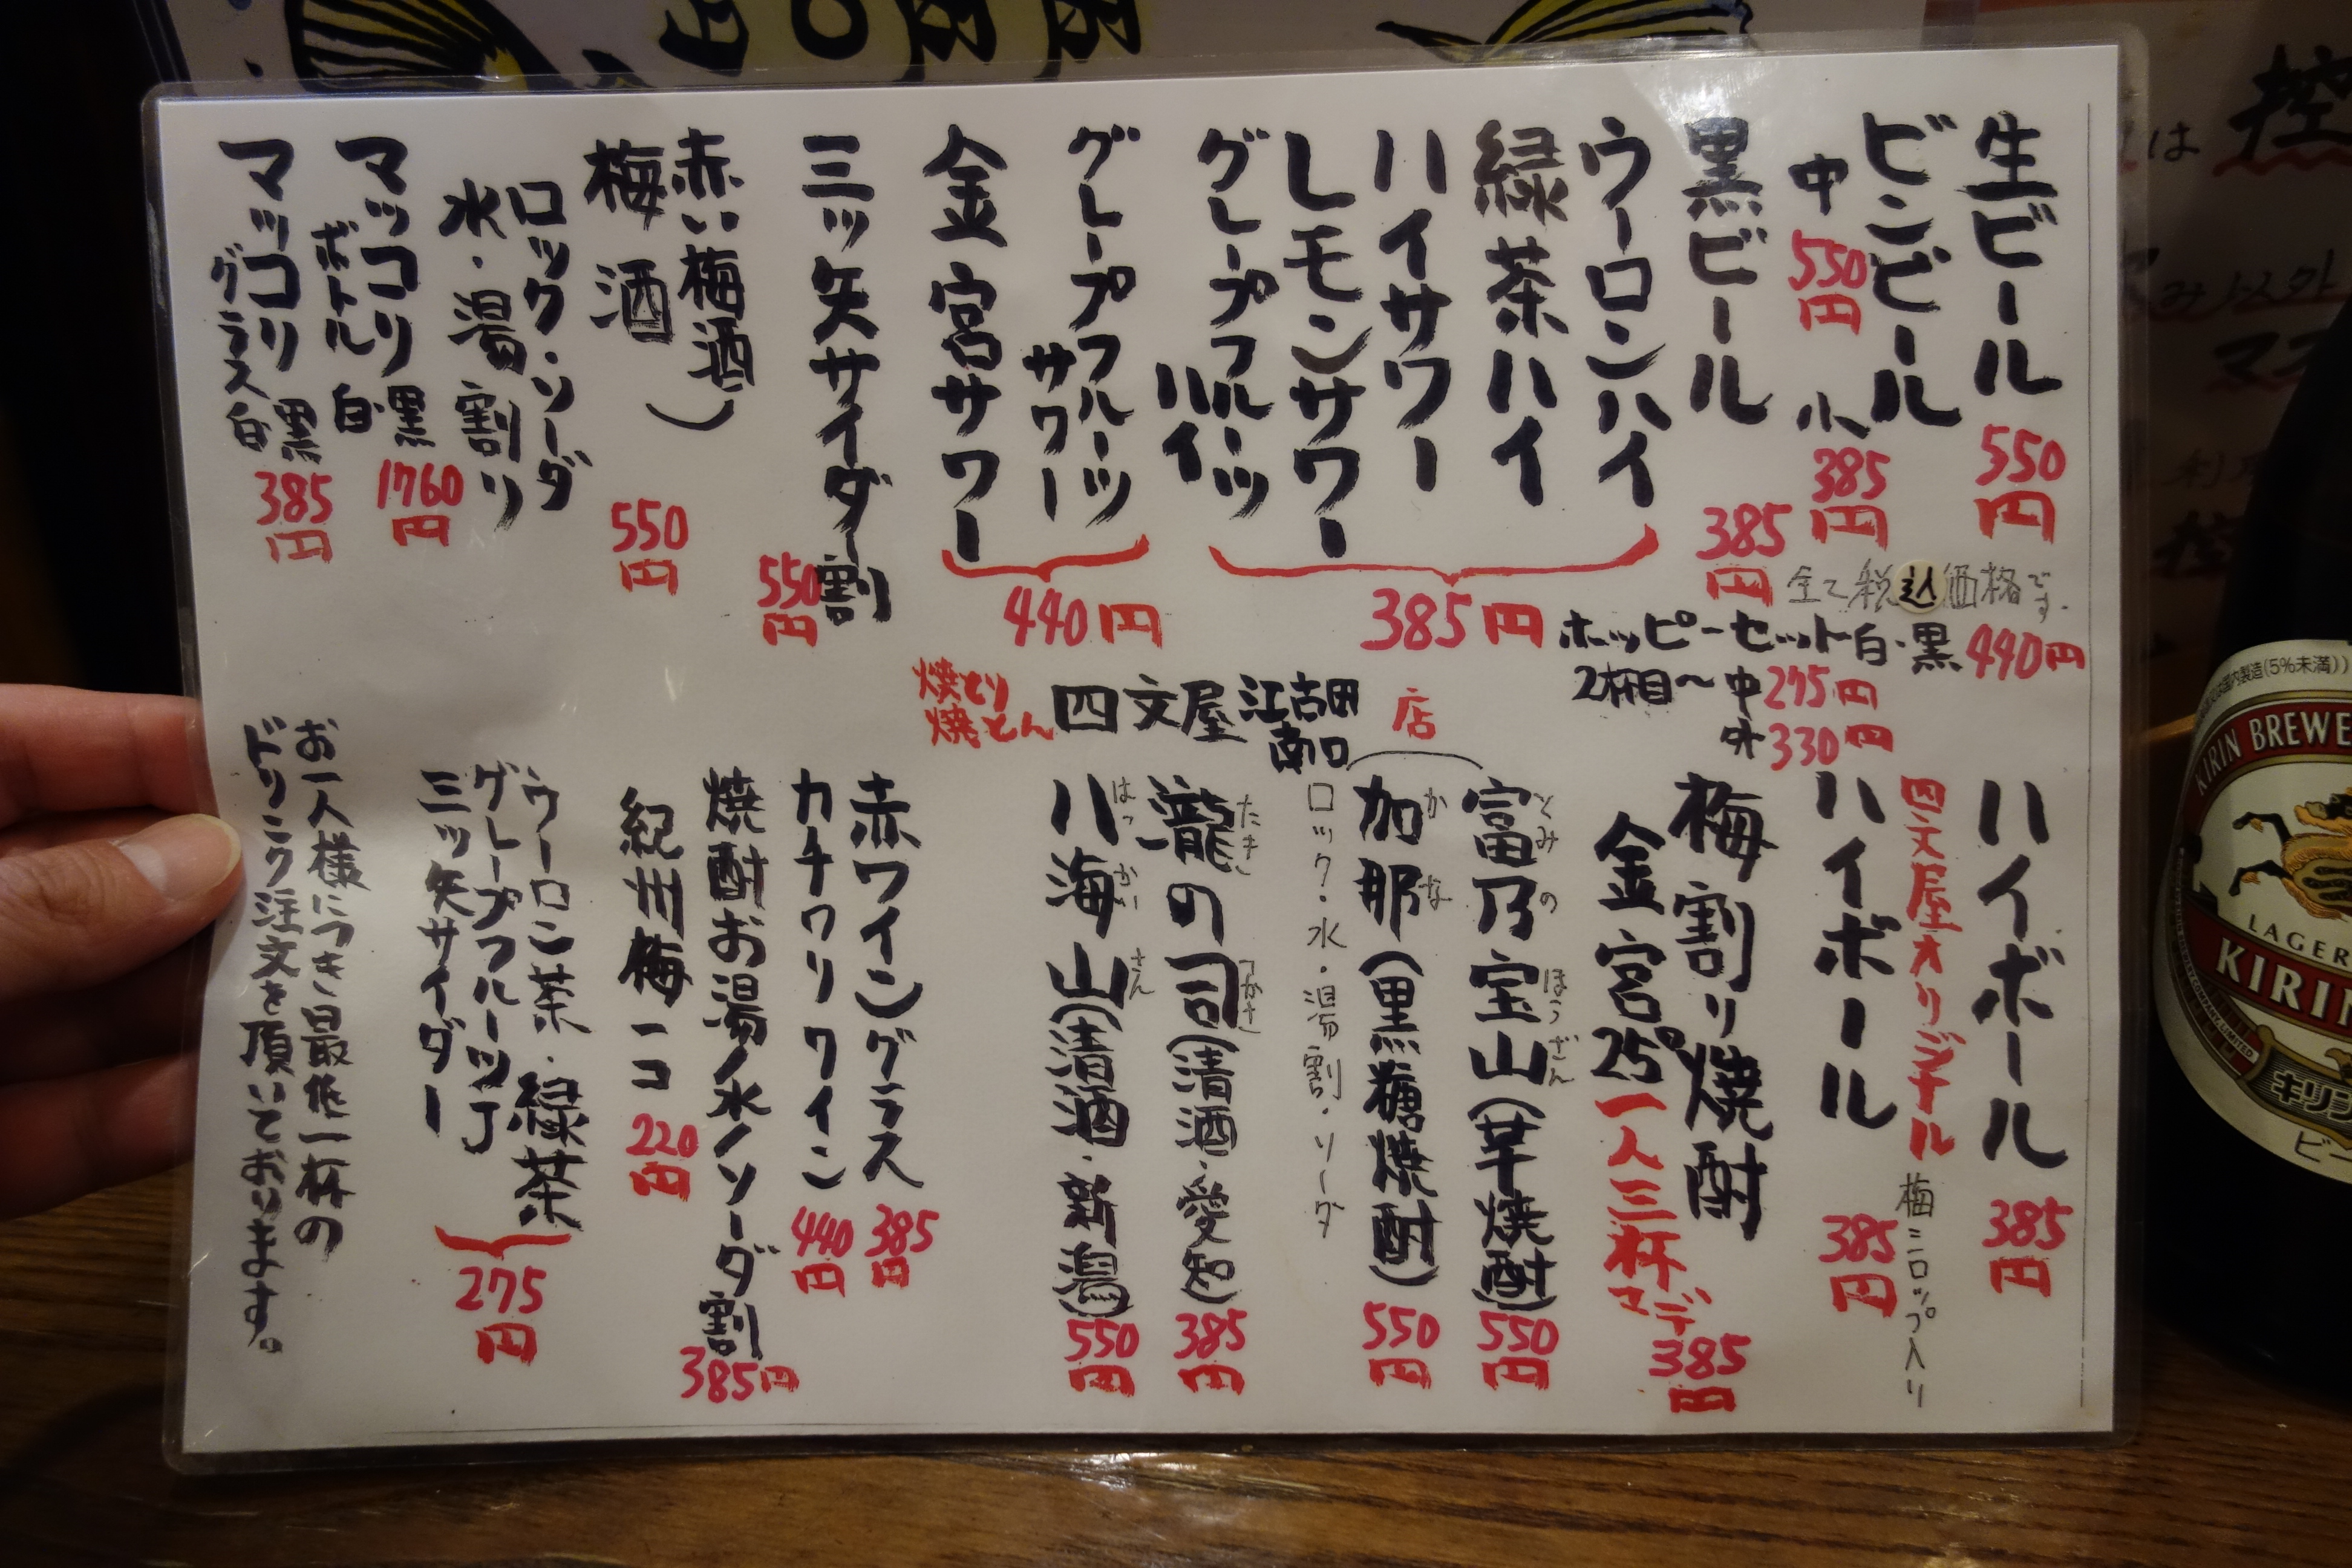 生ビール 550円
ビンビール
中 550円 小 385円
黒ビール 385円
ウーロンハイ
緑茶ハイ
ハイサワー
レモンサワー
グレープフルーツ
ハイ
385円
グレープフルーツ
サワー
金宮サワー
440円
三ッ矢サイダー割
550円
赤い梅酒)
梅酒
550円
ロック・ソーダ
水・湯割り
マッコリ 黒
ボトル 白・
1760円
マッコリ 黒
グラス 白・
385円
全て税込価格です。
ホッピーセット白・黒 440円
2杯目〜中275円
外330円
焼とり
焼とん
四文屋 江古田
南口
店
ハイボール 385円
四文屋オリジナル 梅シロップ入り
ハイボール 385円
梅割り焼酎
金宮25°一人三杯マデ
385円
とみのほうざん
富乃宝山(芋焼酎) 550円
かな
加那(黒糖焼酎) 550円
ロック・水・湯割・ソーダ
たきつかさ
瀧の司(清酒・愛知) 385円
はっかいさん
八海山(清酒・新潟) 550円
赤ワイングラス 385円
カチワリワイン 440円
焼酎お湯/水/ソーダ割
385円
紀州梅一コ 220円
ウーロン茶・緑茶
グレープフルーツJ
三ッ矢サイダー
275円
お一人様につき、最低一杯の
ドリンク注文を頂いております。
控
は
み以外
マス
利
控
国内製造(5%未満)
KIRIN BREWE
LAGER
KIRIN
キリン
ビー